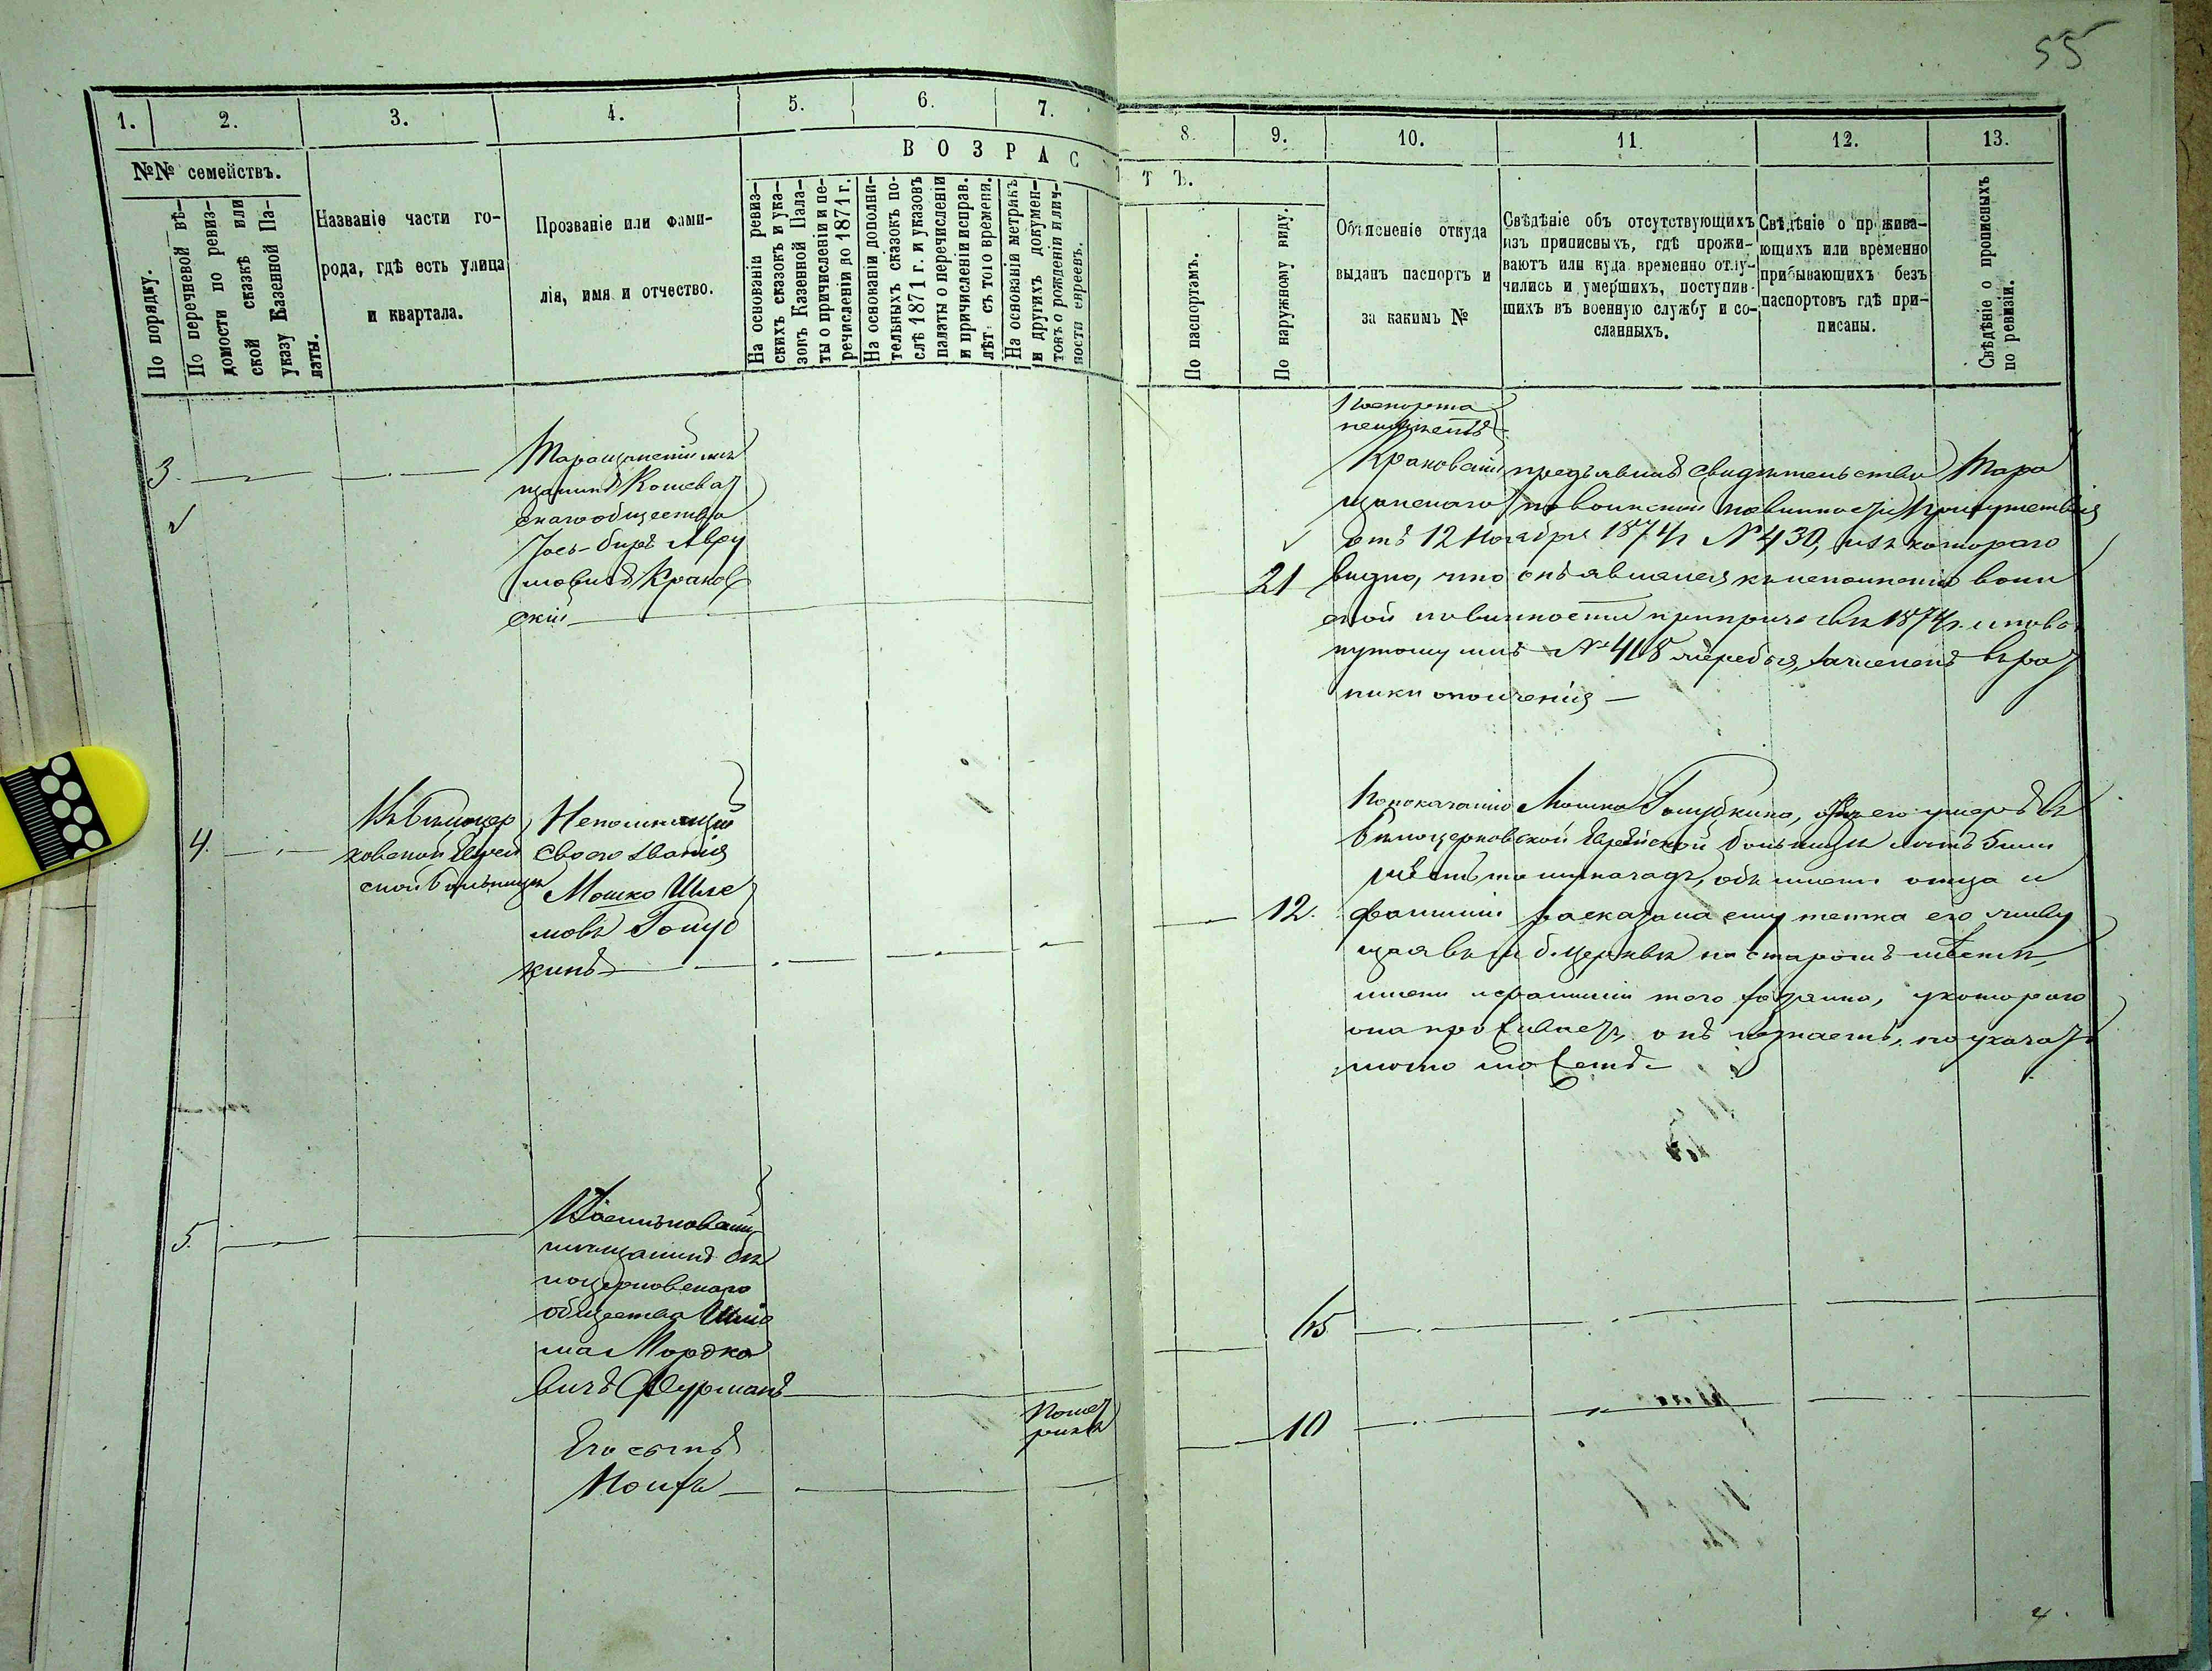 55
1. 2. 3. 4. 5. 6. 7. 8. 9. 10. 11. 12. 13.
№№ семействъ.
По порядку.
По перечневой вѣ-
домости по ревиз-
ской сказкѣ или
указу Казенной Па-
латы.
Названіе части го-
рода, гдѣ есть улица
и квартала.
Прозваніе или фами-
лія, имя и отчество.
ВОЗРАСТЪ.
На основаніи ревиз-
скихъ сказокъ и ука-
зокъ Казенной Пала-
ты о причисленіи и пе-
речисленіи до 1871 г.
На основаніи дополни-
тельныхъ сказокъ по-
слѣ 1871 г. и указовъ
палаты о перечисленіи
и причисленіи исправ.
лѣт: съ того времени.
На основаніи метрикъ
и другихъ докумен-
товъ о рожденіи и лич-
ности евреевъ.
По паспортамъ.
По наружному виду.
Объясненіе откуда
выданъ паспортъ и
за какимъ №
Свѣдѣніе объ отсутствующихъ
изъ приписныхъ, гдѣ прожи-
ваютъ или куда временно отлу-
чились и умершихъ, поступив-
шихъ въ военную службу и со-
сланныхъ.
Свѣдѣніе о прожива-
ющихъ или временно
прибывающихъ безъ
паспортовъ гдѣ при-
писаны.
Свѣдѣніе о прописныхъ
по ревизіи.
3.
Таращанскій мѣ
щанинъ Кошеват
скаго общества
Іось-Беръ Авру
мовичъ Краков
скій
21
Паспорта
неимѣетъ
Краковскій предъявилъ свидѣтельство Тара
щанскаго по воинской повинности Присутствія
отъ 12 Ноября 1874 г № 430, изъ котораго
видно, что онъ явился къ исполненію воин
ской повинности при призывѣ 1874 г. и по вы
нутому имъ № 418 жеребья, зачисленъ въ рат
ники ополченія —
4.
Въ Бѣлоцер
ковской Еврей
ской больницѣ
Непомнящій
своего званія
Мошко Шле
мовъ Голуб
кинъ
12.
По показанію Мошка Голубкина, отецъ его умеръ въ
Бѣлоцерковской Еврейской больницѣ лѣтъ 5 или
шесть тому назадъ, объ имени отца и
фамиліи расказала ему тетка его живу
щая въ м. б. Церквѣ на старомъ мѣстѣ,
имени и фамиліи того хозяина, у котораго
она проживаетъ, онъ незнаетъ, но указать
мѣсто можетъ
5.
мѣщанинъ бѣ
лоцерковскаго
общества Шлио
ма Мордко
вичъ Фурманъ
45
Его сынъ
По мет
рикѣ
10
4.